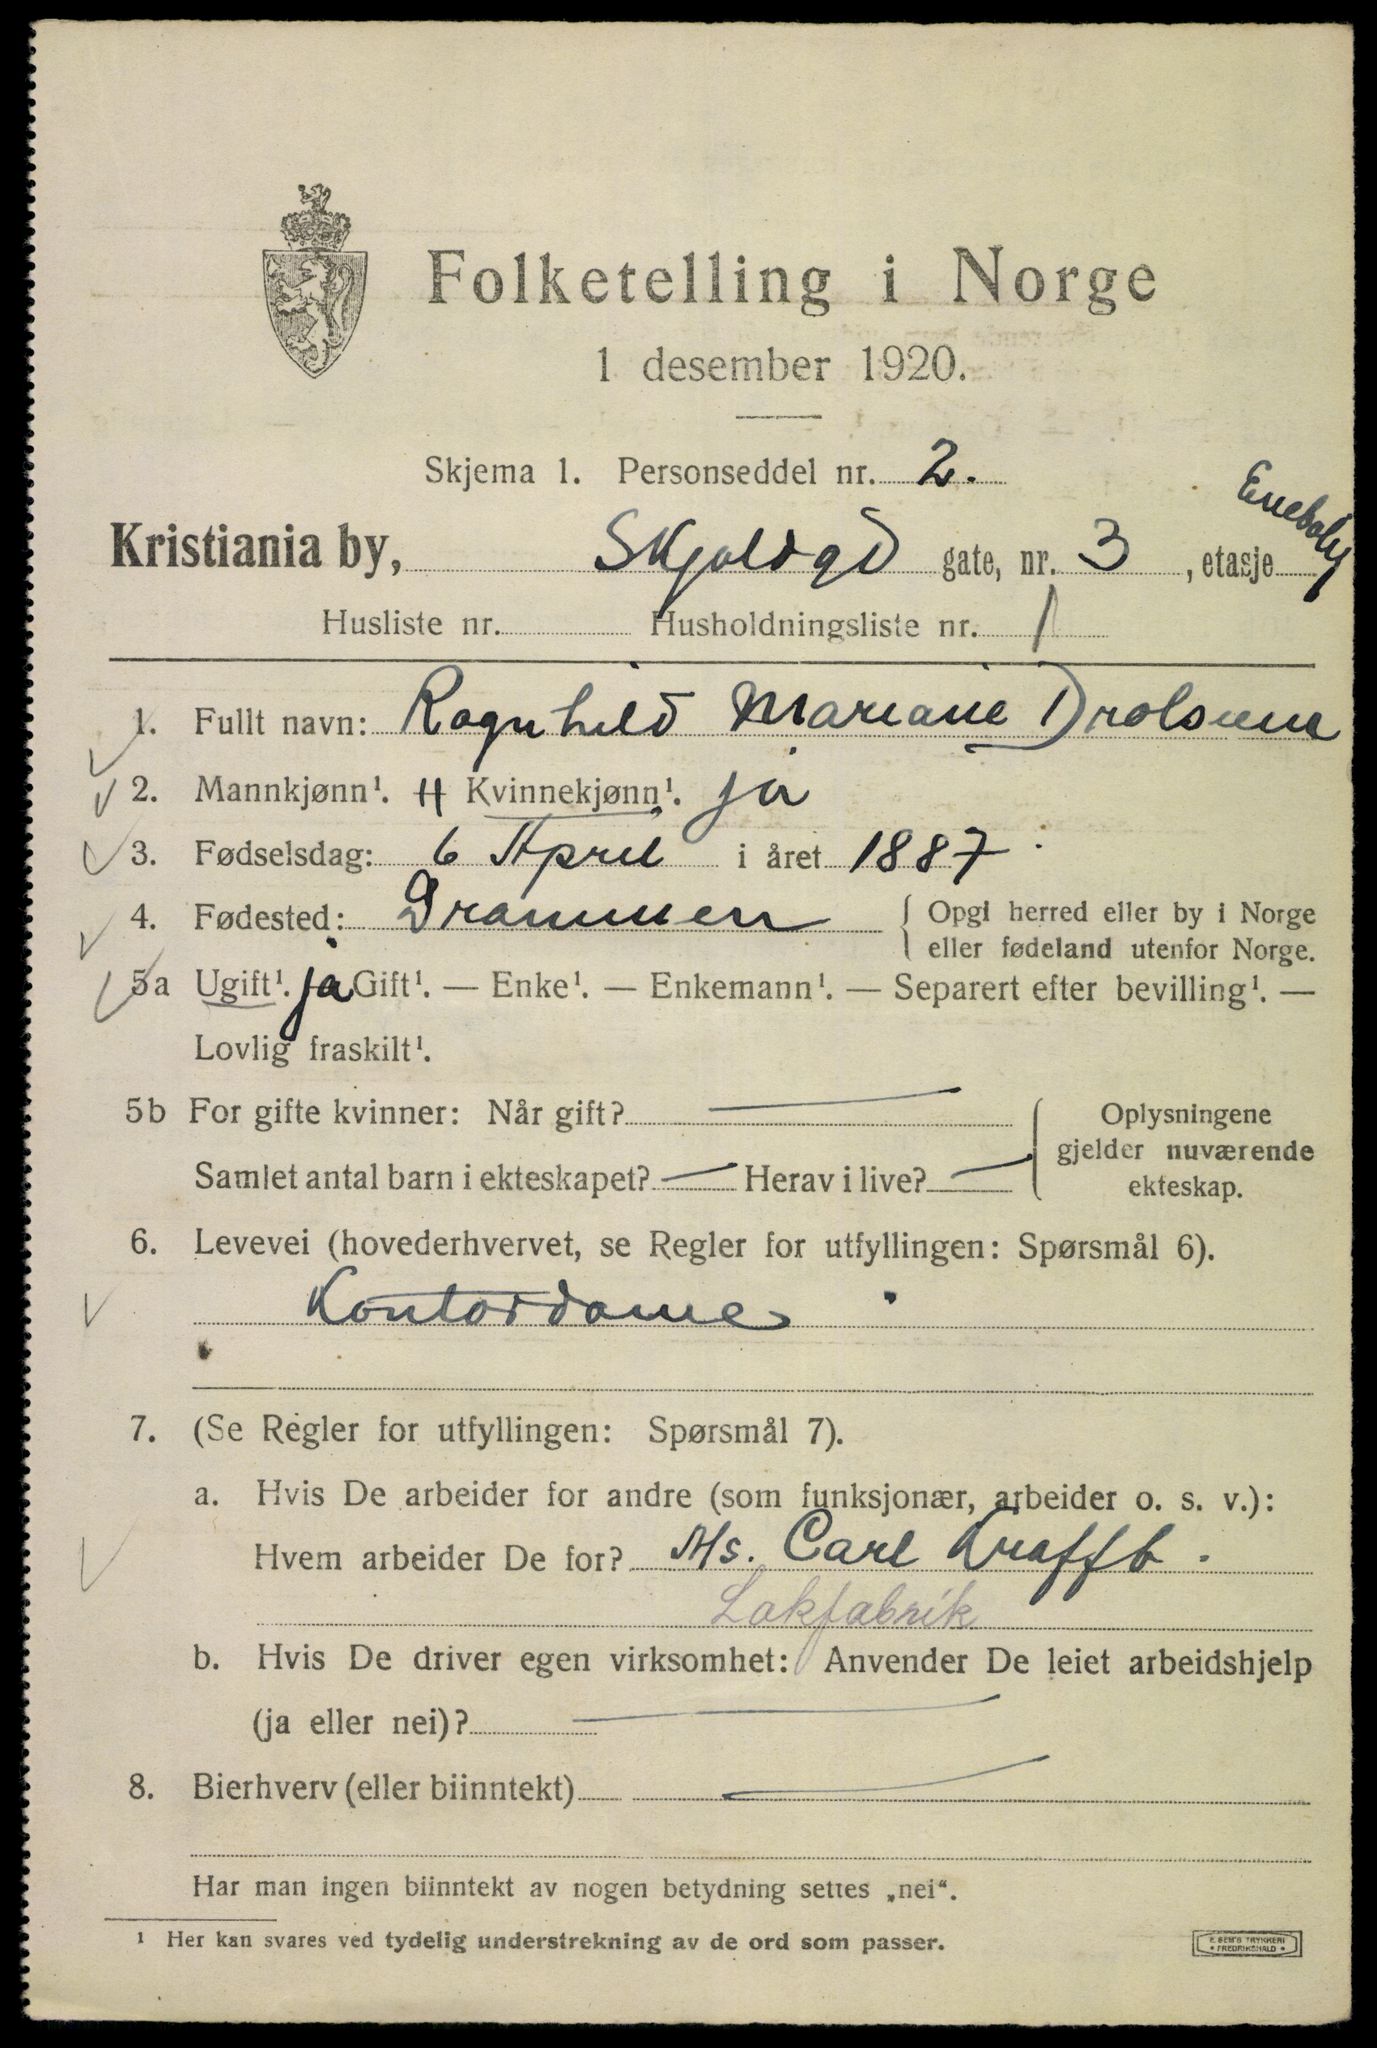 Folketelling i Norge
1 desember 1920.
Skjema 1. Personseddel nr. 2.
Kristiania by, Skjoldgd gate, nr. 3, etasje Enebolig
Husliste nr. Husholdningsliste nr. 1
1. Fullt navn: Ragnhild Mariane Drolsum
2. Mannkjønn¹. Kvinnekjønn¹. ja
3. Fødselsdag: 6 April i året 1887.
4. Fødested: Drammen { Opgi herred eller by i Norge
eller fødeland utenfor Norge.
5a Ugift¹. ja Gift¹. — Enke¹. — Enkemann¹. — Separert efter bevilling¹. —
Lovlig fraskilt¹.
5b For gifte kvinner: Når gift? — { Oplysningene
gjelder nuværende
Samlet antal barn i ekteskapet? — Herav i live? —
ekteskap.
6. Levevei (hovederhvervet, se Regler for utfyllingen: Spørsmål 6).
Kontordame
7. (Se Regler for utfyllingen: Spørsmål 7).
a. Hvis De arbeider for andre (som funksjonær, arbeider o. s. v.):
Hvem arbeider De for? A/s. Carl Krafft.
Lakfabrik
b. Hvis De driver egen virksomhet: Anvender De leiet arbeidshjelp
(ja eller nei)? —
8. Bierhverv (eller biinntekt) —
Har man ingen biinntekt av nogen betydning settes „nei“.
¹ Her kan svares ved tydelig understrekning av de ord som passer.
E. SEM'S TRYKKERI
• FREDRIKSHALD •